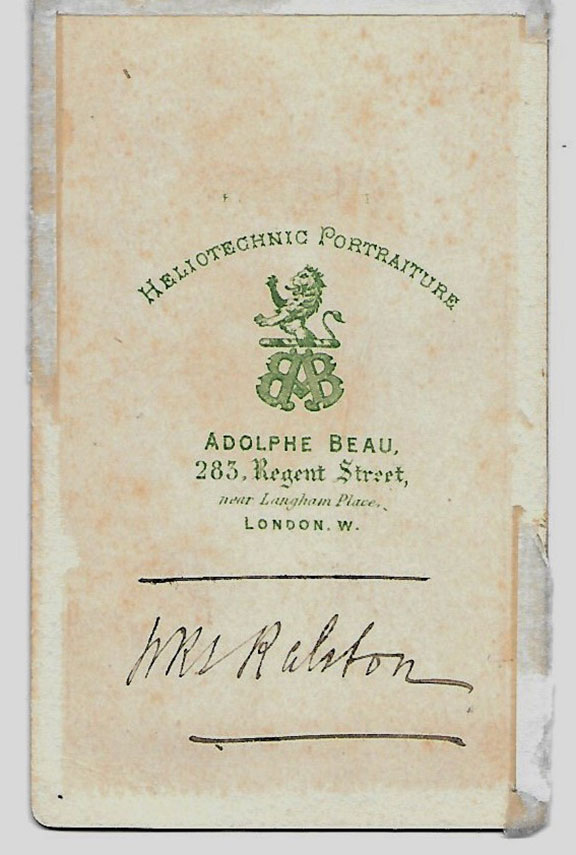 HELIOTECHNIC PORTRAITURE
AB
ADOLPHE BEAU,
283, Regent Street,
near Langham Place,
LONDON. W.
WRS Ralston